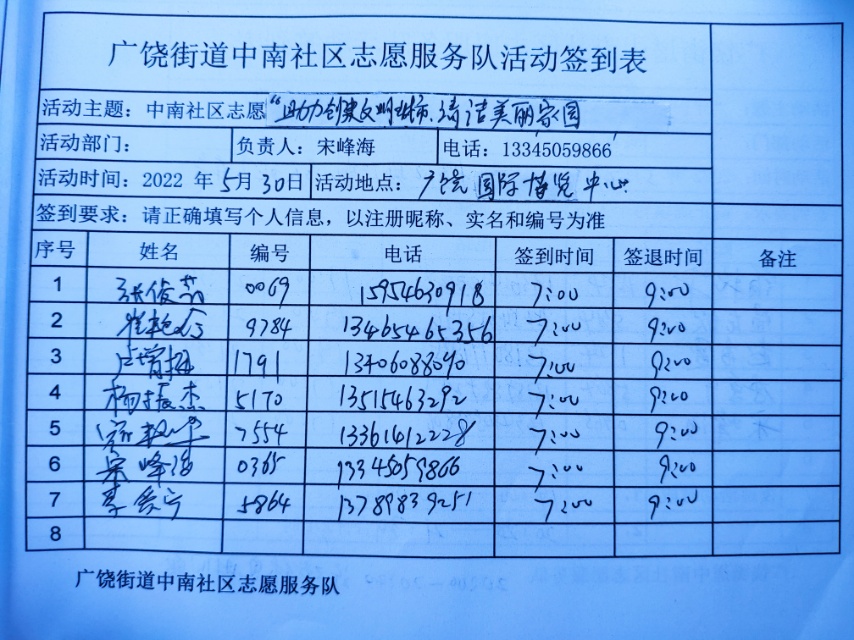 广饶街道中南社区志愿服务队活动签到表
活动主题：中南社区志愿“助力创建文明城市、清洁美丽家园
活动部门： 负责人：宋峰海 电话：13345059866
活动时间：2022 年 5月30日 活动地点：广饶国际博览中心
签到要求：请正确填写个人信息，以注册昵称、实名和编号为准
序号 姓名 编号 电话 签到时间 签退时间 备注
1 张俊 0069 15954630918 7:00 9:00
2 崔艳 9784 13465465356 7:00 9:00
3 1791 13406088090 7:00 9:00
4 杨振杰 5170 13515463292 7:00 9:00
5 7554 13361612228 7:00 9:00
6 宋峰海 0365 13345059866 7:00 9:00
7 李爱宁 5864 13789839251 7:00 9:00
8
广饶街道中南社区志愿服务队